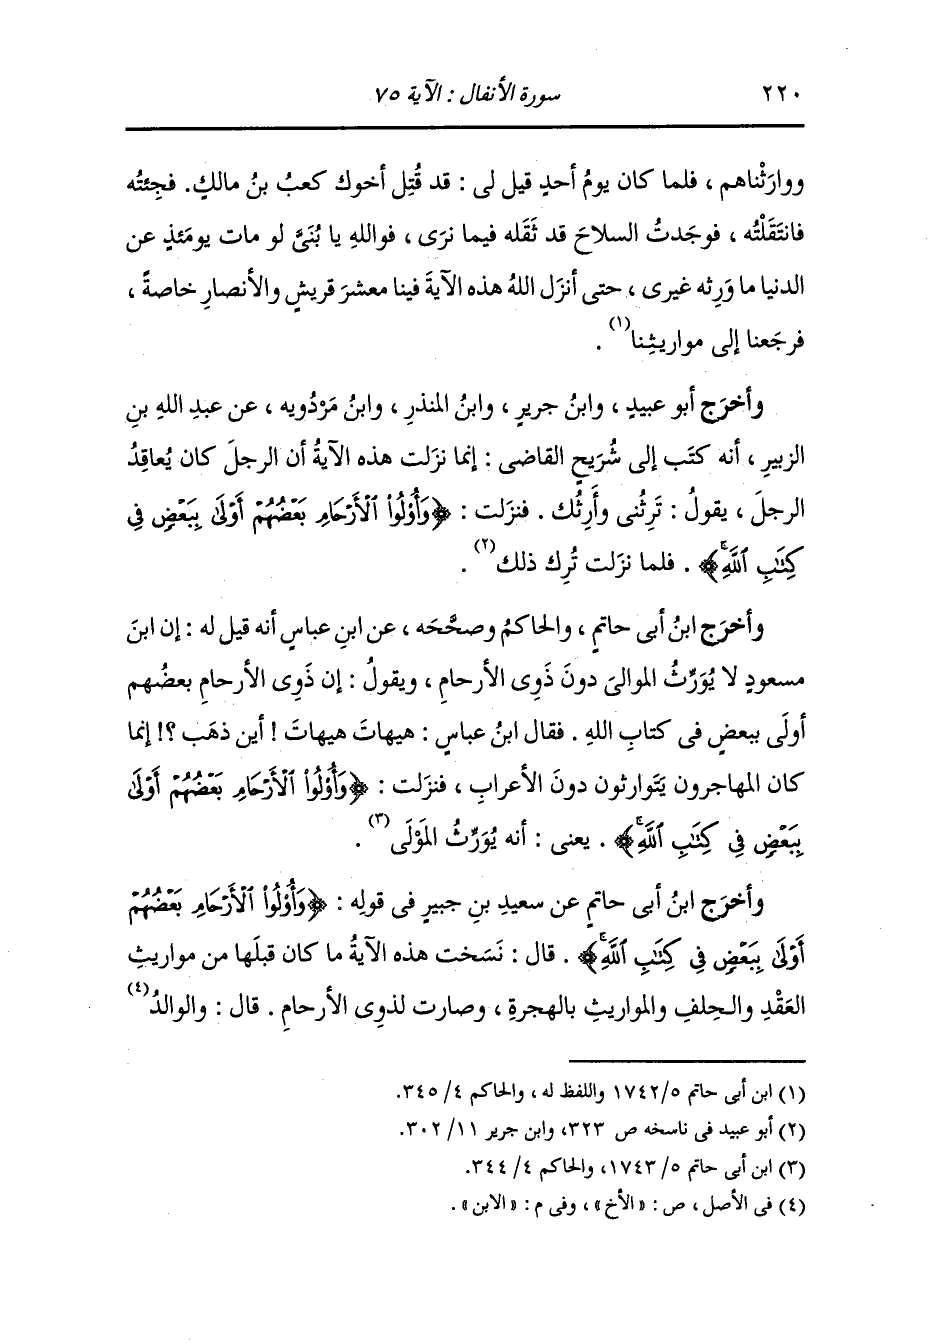 ٢٢٠ سورة الأنفال : الآية ٧٥
ووارَثْناهم ، فلما كان يومُ أحدٍ قيل لى : قد قُتِل أخوك كعبُ بنُ مالكٍ. فجِئتُه
فانتَقَلْتُه ، فوجَدتُ السلاحَ قد ثَقَله فيما نرَى ، فواللهِ يا بُنَىَّ لو مات يومَئذٍ عن
الدنيا ما وَرِثه غيرى ، حتى أنزَل اللهُ هذه الآيةَ فينا معشرَ قريشٍ والأنصارِ خاصةً ،
فرجَعنا إلى مواريثِنا(١) .
وأخرَج أبو عبيدٍ ، وابنُ جريرٍ ، وابنُ المنذرِ ، وابنُ مَرْدُويه ، عن عبدِ اللهِ بنِ
الزبيرِ ، أنه كتَب إلى شُرَيحٍ القاضى : إنما نزَلت هذه الآيةُ أن الرجلَ كان يُعاقِدُ
الرجلَ ، يقولُ : تَرِثُنى وأَرِثُك . فنزَلت : ﴿وَأُوْلُواْ ٱلْأَرْحَامِ بَعْضُهُمْ أَوْلَىٰ بِبَعْضٍ فِي
كِتَٰبِ ٱللَّهِۚ﴾ . فلما نزَلت تُرِك ذلك(٢) .
وأخرَج ابنُ أبى حاتمٍ ، والحاكمُ وصحَّحَه ، عن ابنِ عباسٍ أنه قيل له : إن ابنَ
مسعودٍ لا يُوَرِّثُ الموالىَ دونَ ذَوِى الأرحامِ ، ويقولُ : إن ذَوِى الأرحامِ بعضُهم
أولَى ببعضٍ فى كتابِ اللهِ . فقال ابنُ عباسٍ : هيهاتَ هيهاتَ ! أين ذهَب ؟! إنما
كان المهاجرون يَتَوارثون دونَ الأعرابِ ، فنزَلت : ﴿وَأُوْلُواْ ٱلْأَرْحَامِ بَعْضُهُمْ أَوْلَىٰ
بِبَعْضٍ فِي كِتَٰبِ ٱللَّهِۚ﴾ . يعنى : أنه يُوَرِّثُ المَوْلَى(٣) .
وأخرَج ابنُ أبى حاتمٍ عن سعيدِ بنِ جبيرٍ فى قولِه : ﴿وَأُوْلُواْ ٱلْأَرْحَامِ بَعْضُهُمْ
أَوْلَىٰ بِبَعْضٍ فِي كِتَٰبِ ٱللَّهِۚ﴾ . قال : نَسَخت هذه الآيةُ ما كان قبلَها من مواريثِ
العَقْدِ والحِلفِ والمواريثِ بالهجرةِ ، وصارت لذوِى الأرحامِ . قال : والوالدُ(٤)
(١) ابن أبى حاتم ١٧٤٢/٥ واللفظ له ، والحاكم ٤/ ٣٤٥.
(٢) أبو عبيد فى ناسخه ص ٣٢٣، وابن جرير ١١/ ٣٠٢.
(٣) ابن أبى حاتم ٥/ ١٧٤٣، والحاكم ٤/ ٣٤٤.
(٤) فى الأصل ، ص : «الأخ» ، وفى م : «الابن» .